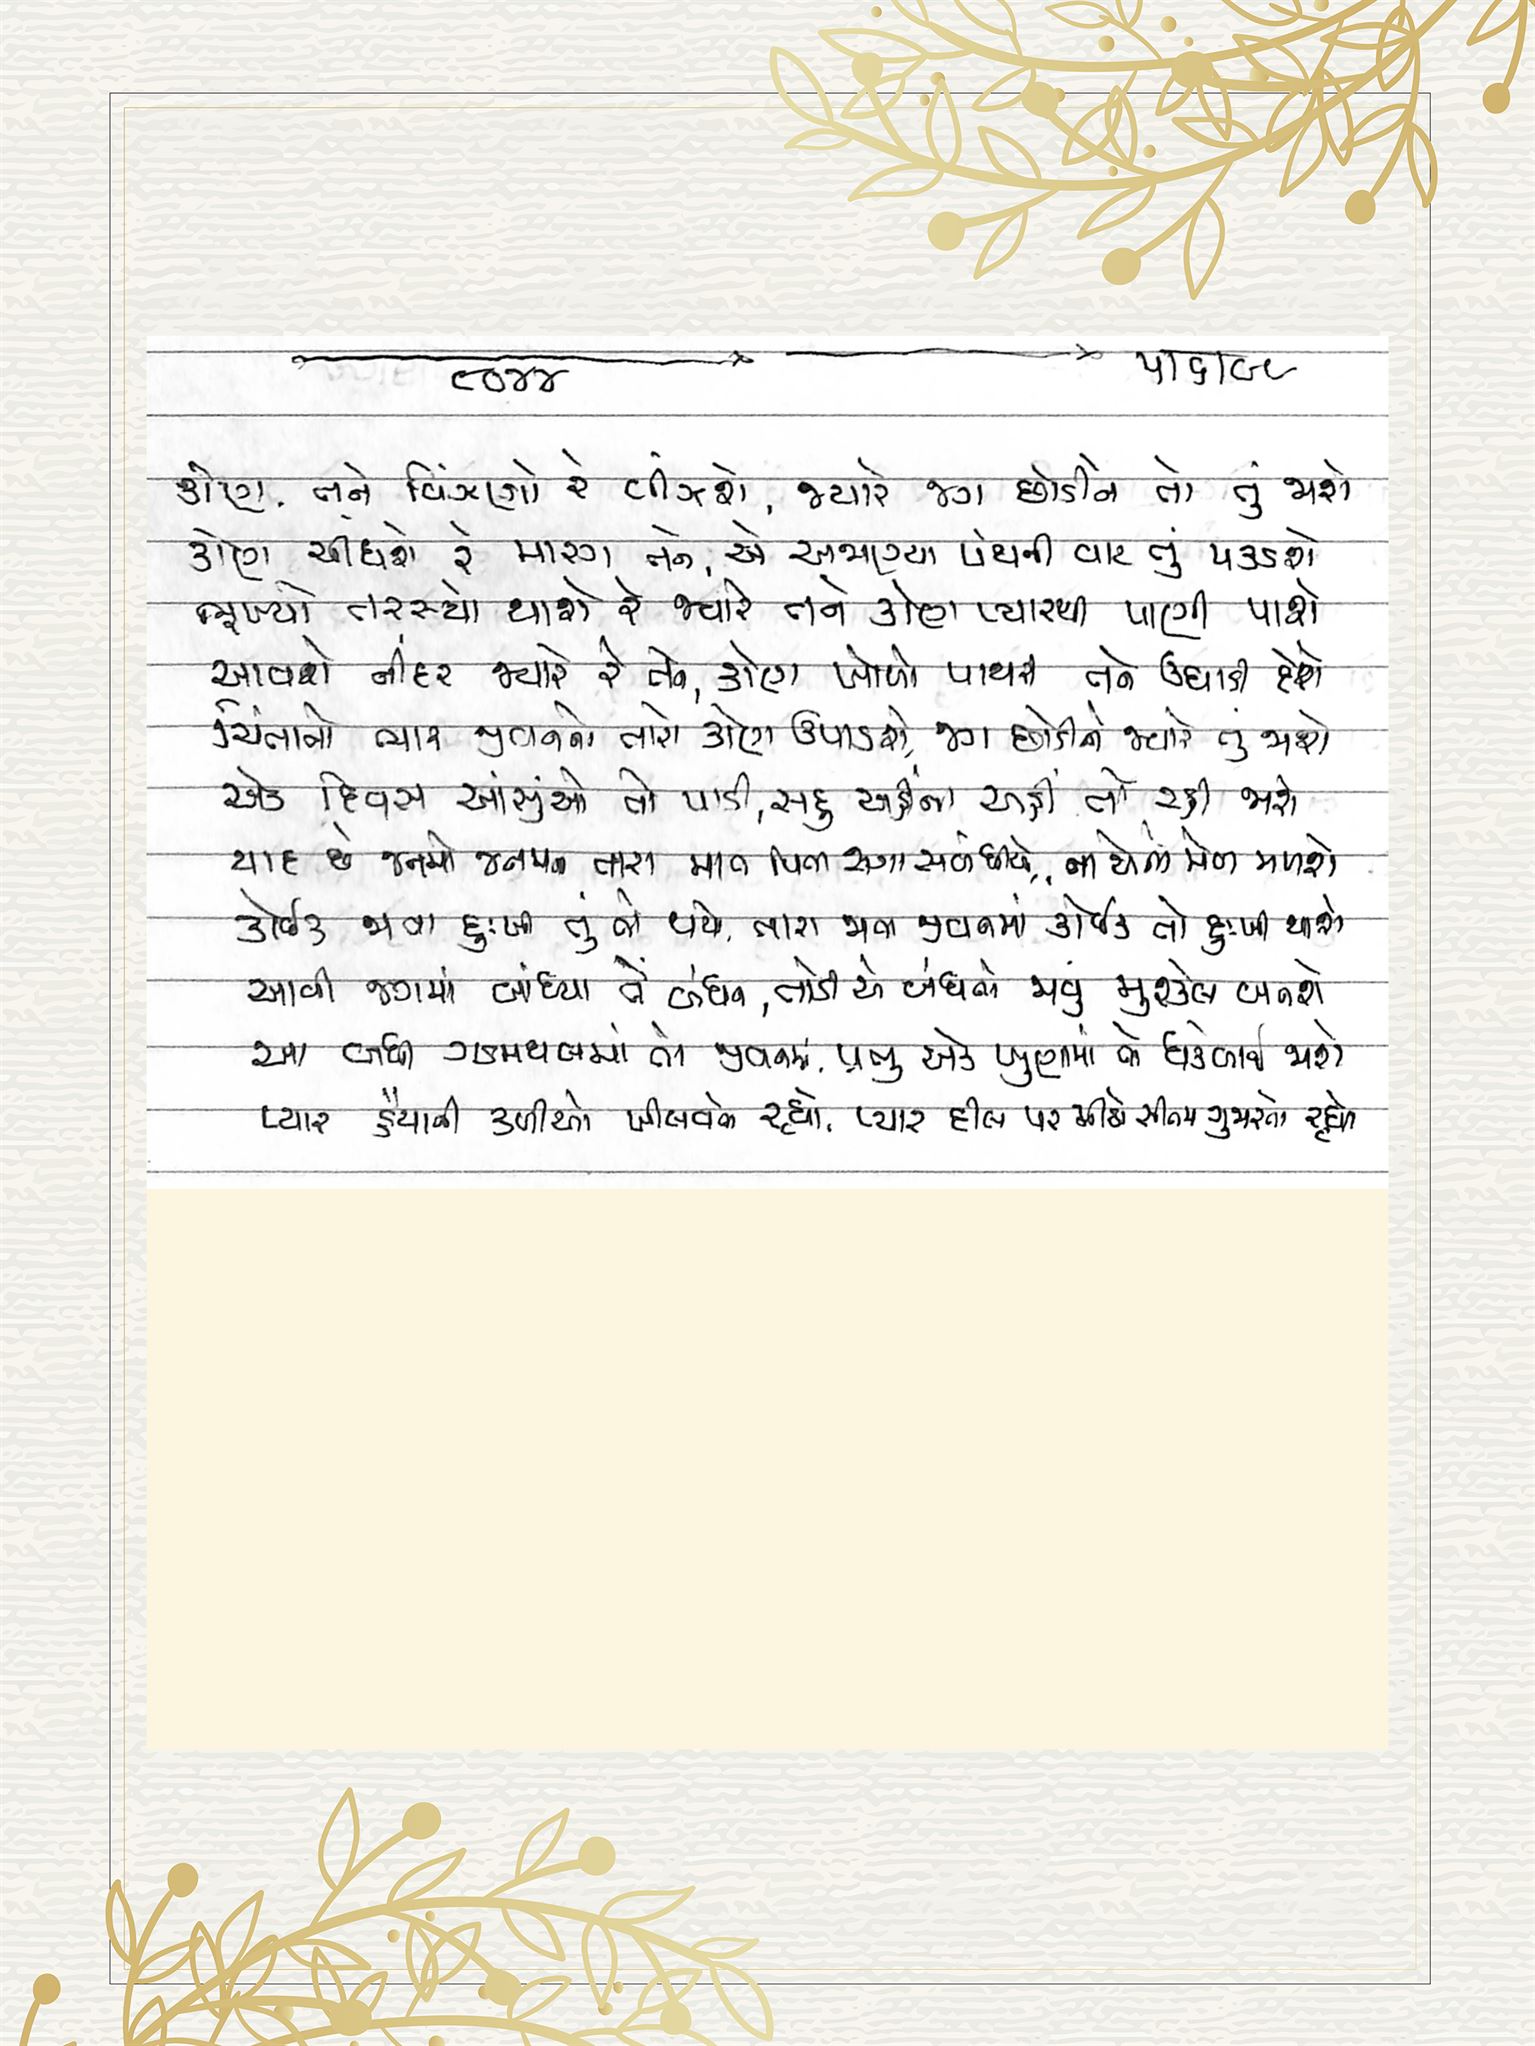 ૯૦૪૪ ૫।૬।૦૮
કોણ તને વિંઝણો રે વીંઝશે, જ્યારે જગ છોડીને તો તું જાશે
કોણ ચીંધશે રે મારગ તને, એ અજાણ્યા પંથની વાટ તું પકડશે
ભૂખ્યો તરસ્યો થાશે રે જ્યારે તને કોણ પ્યારથી પાણી પાશે
આવશે નીંદર જ્યારે રે તને, કોણ ખોળો પાથરી તને દેશે
ચિંતાનો ભાર જીવનનો તારો કોણ ઉપાડશે, જગ છોડીને જ્યારે તું જાશે
એક દિવસ આંસુઓ તો પાડી, સહુ અહીંના અહીં તો રહી જાશે
યાદ છે જનમો જનમના તારા માત પિતા સગા સંબંધીયે, ના એનો મેળ મળશે
કોઈક જાતા દુઃખી તું તો થયો, તારા જાતા જીવનમાં કોઈક તો દુઃખી થાશે
આવી જગમાં બાંધ્યા તેં બંધન, તોડી એ બંધનો જાવું મુશ્કેલ બનશે
આ બધી ગડમથલમાં તો જીવનમાં, પ્રભુ એક ખુણામાં તો જાશે
પ્યાર હૈયાની કળીઓ ખીલવતો રહ્યો, પ્યાર દીલ પર મીઠો સીતમ ગુજારતો રહ્યો